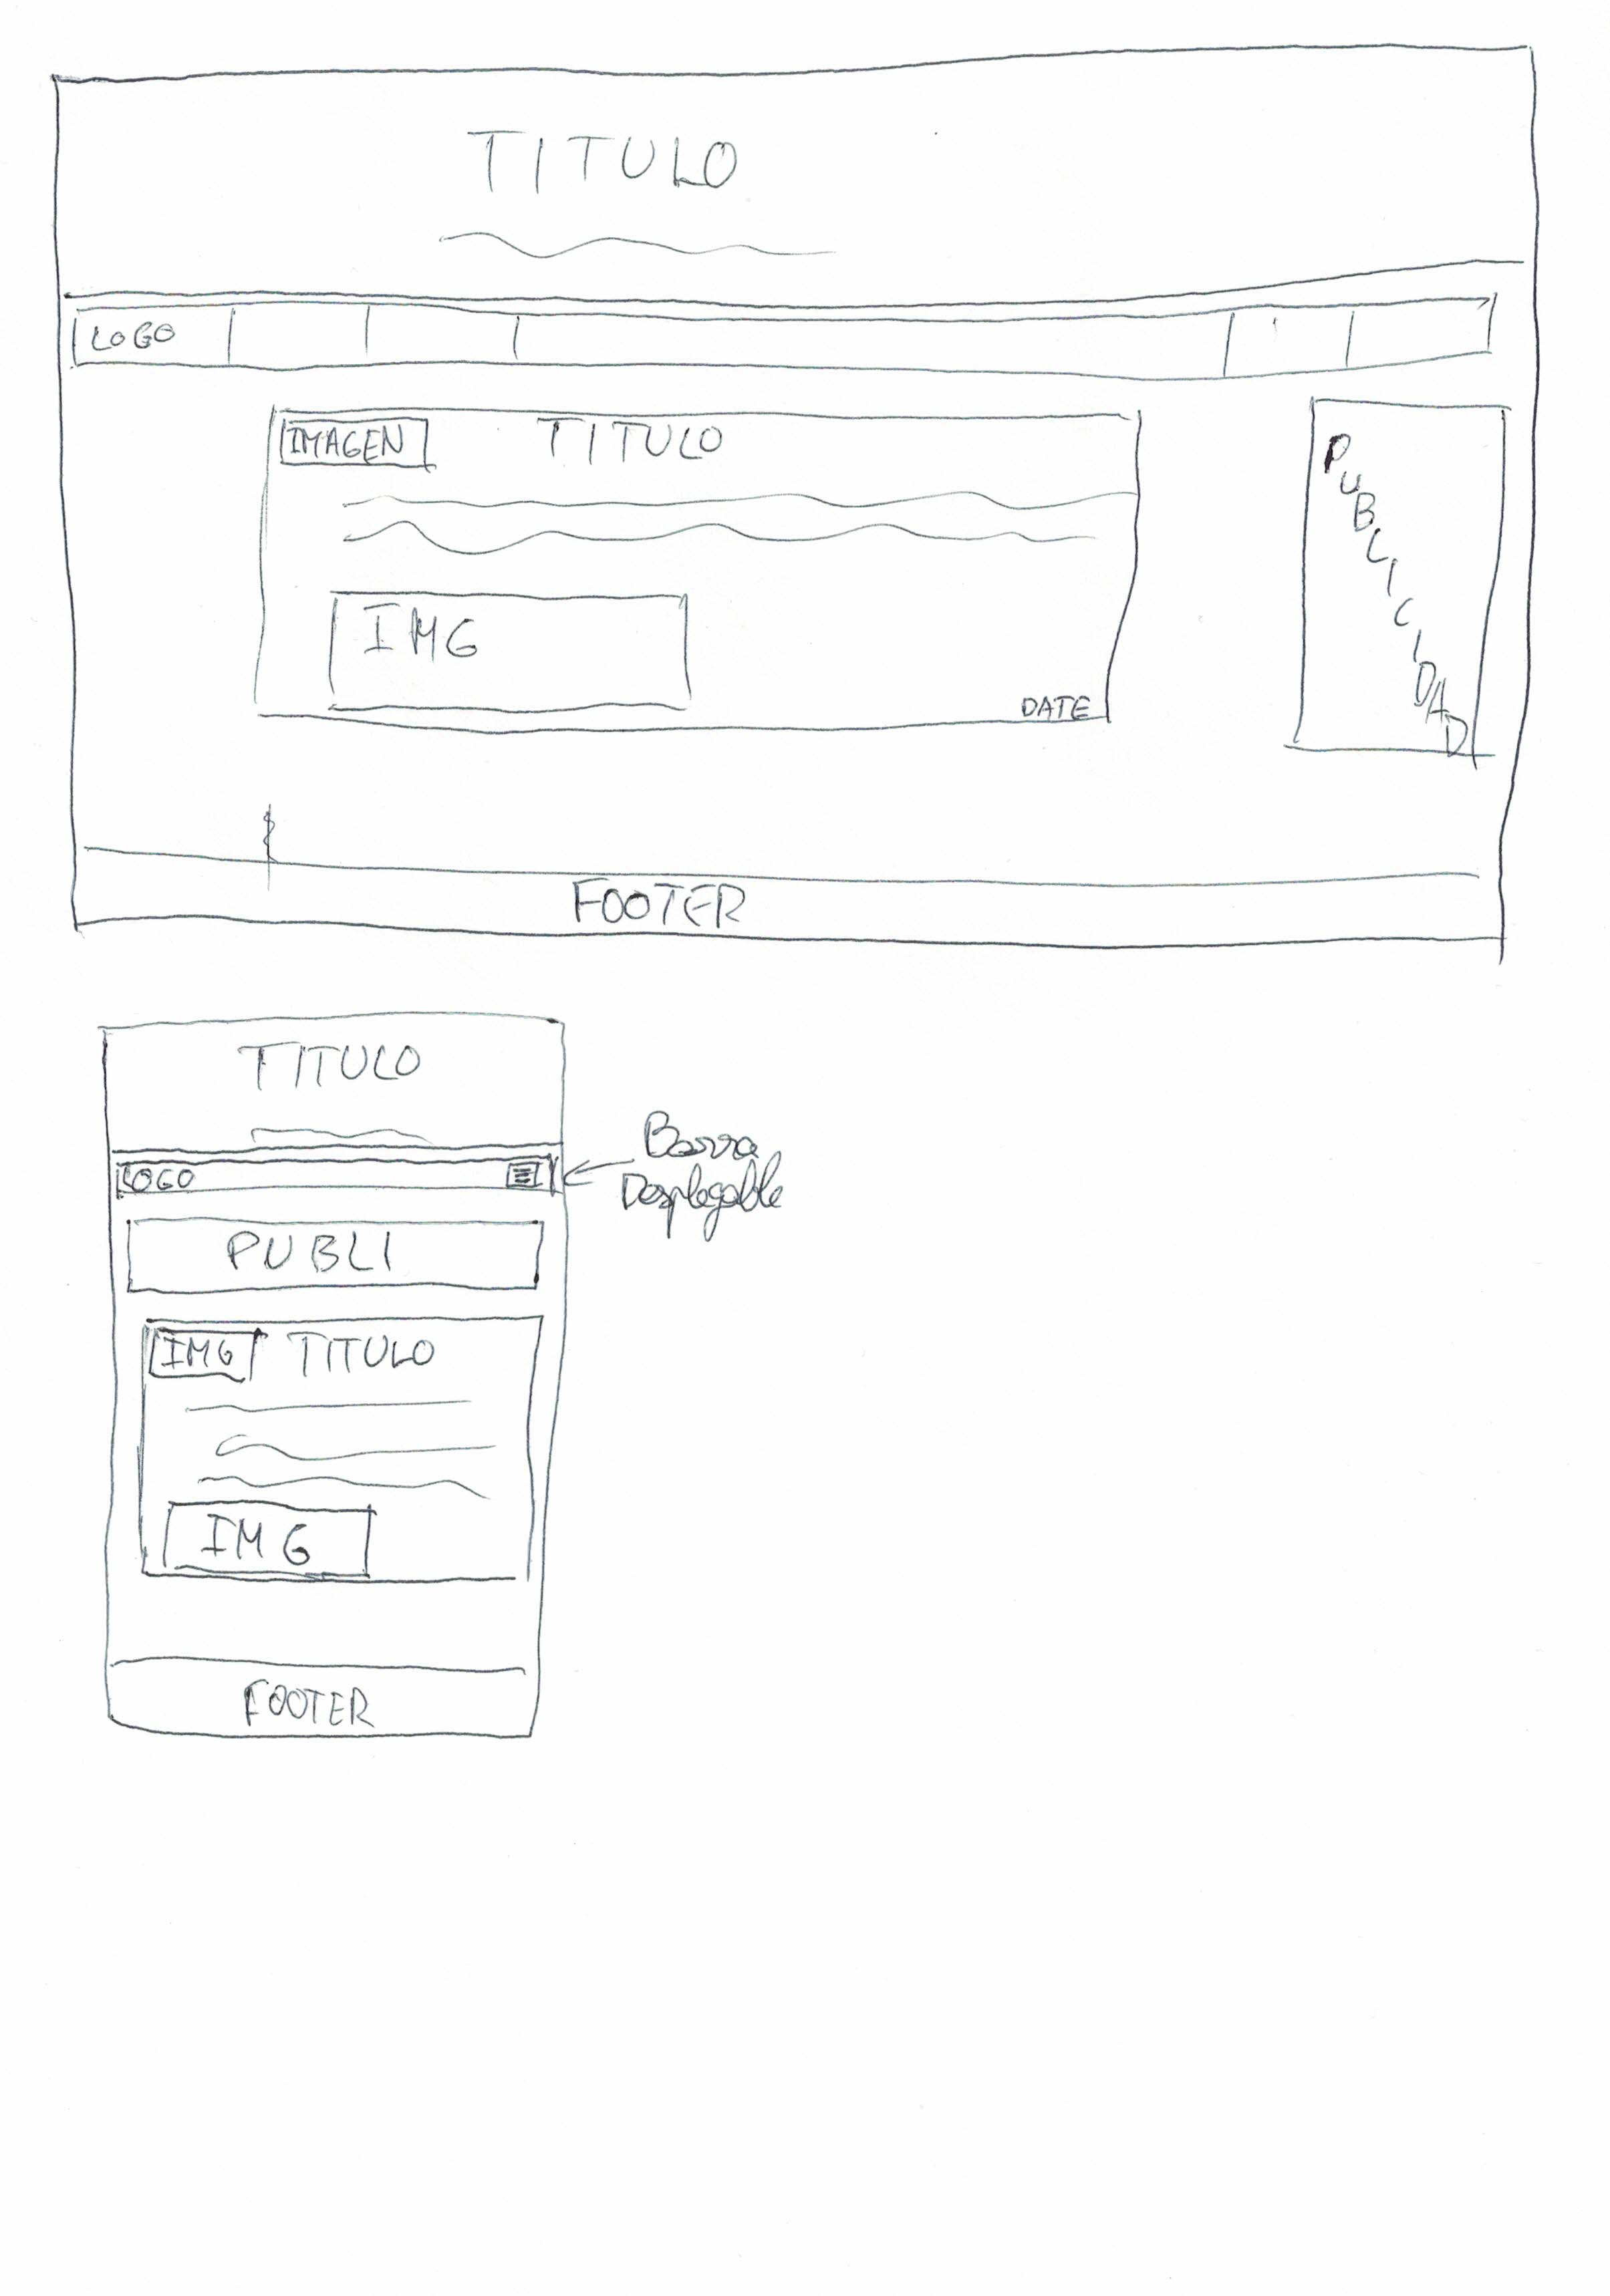 TITULO
LOGO
IMAGEN TITULO
IMG
DATE
PUBLICIDAD
FOOTER
TITULO
LOGO
Barra
Desplegable
PUBLI
IMG TITULO
IMG
FOOTER